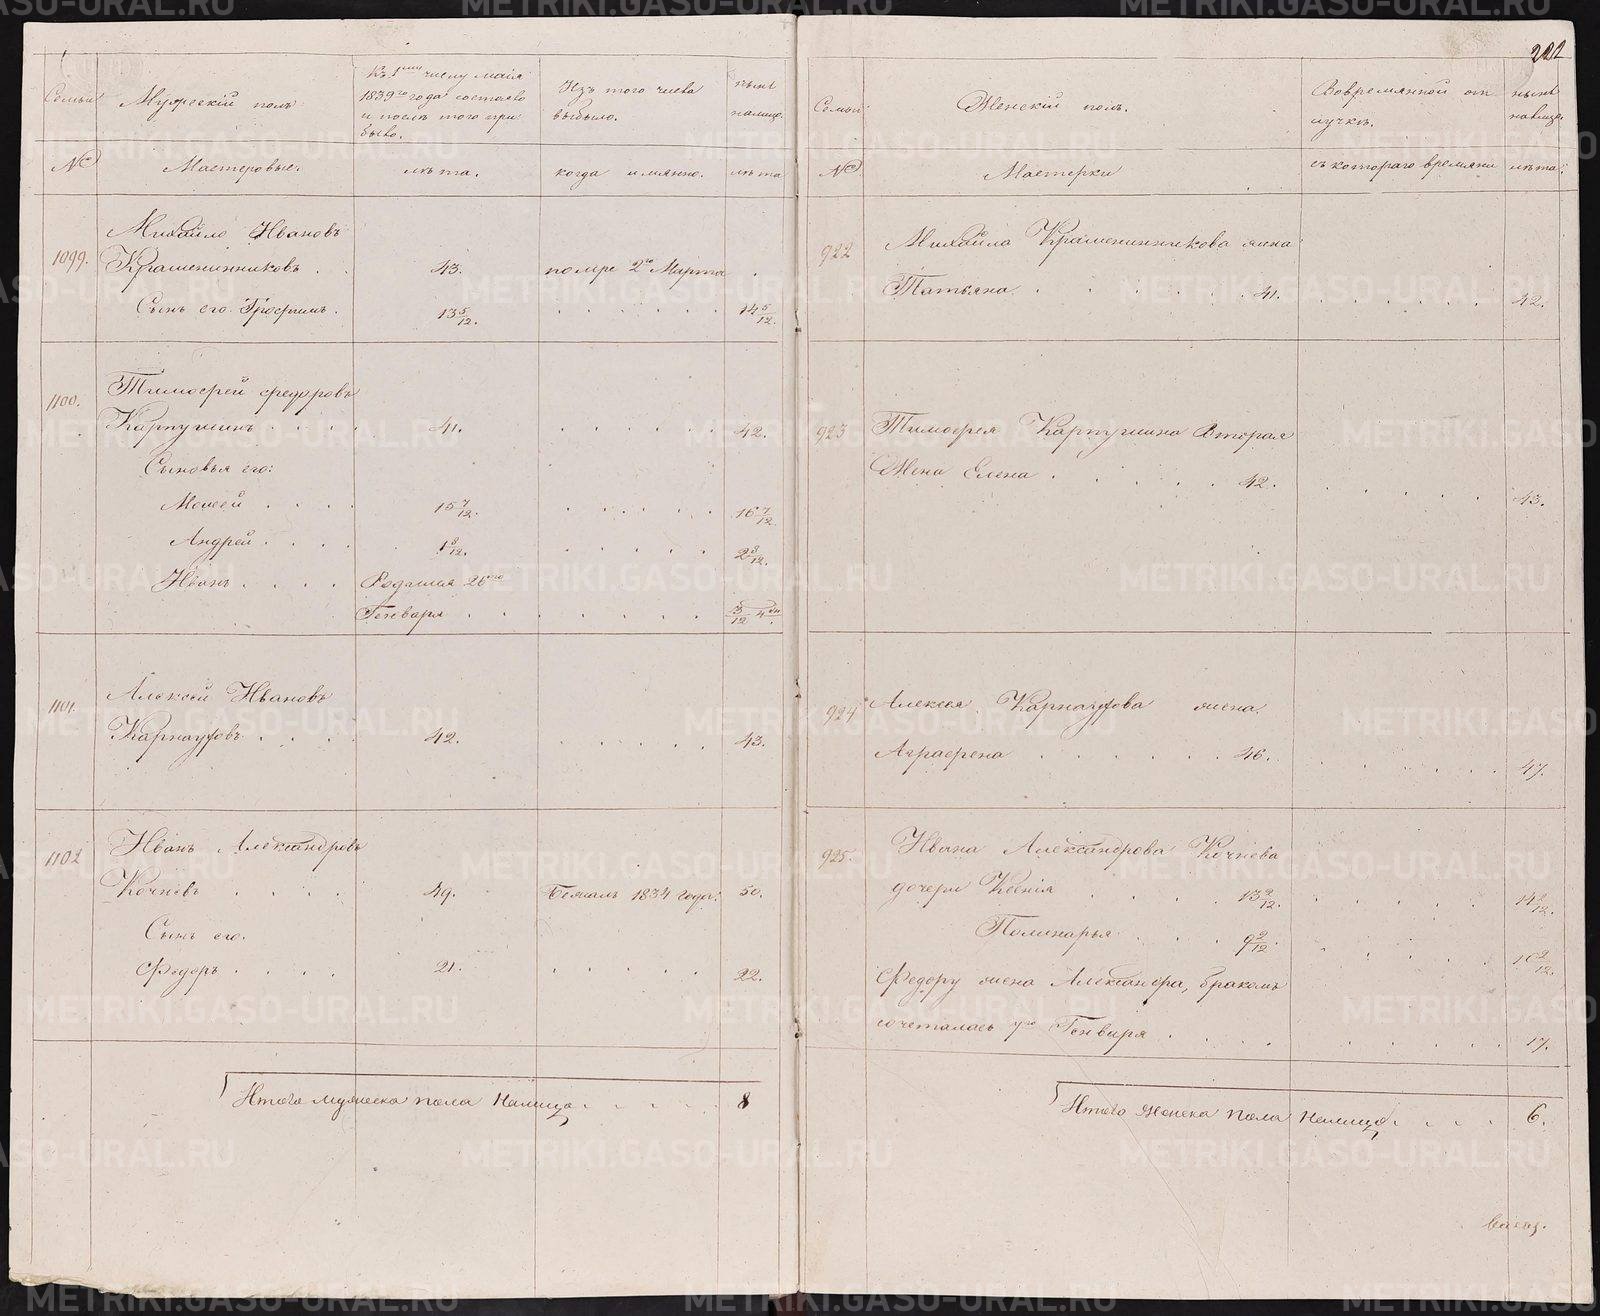 222
Семьи
Мужескій полъ.
Къ 1му числу маія
1839го года состояло
и послѣ того при
было.
Изъ того числа
выбыло.
нынѣ
налицо.
№
Мастеровые.
лѣта.
когда имянно.
лѣта
1099.
Михайло Ивановъ
Крашенинниковъ .
43.
помре 2го Марта
Сынъ его Трофимъ .
13 5/12.
14 5/12.
1100.
Тимофей Федоровъ
Карпушинъ . . . .
41.
42.
Сыновья его:
Моисей . . . .
15 7/12.
16 7/12.
Андрей . . . .
1 8/12.
2 8/12.
Иванъ . . . .
Родился 26го
Генваря
3/12 4 дн.
1101.
Алексей Ивановъ
Карнауховъ . . . .
42.
43.
1102
Иванъ Александровъ
Кочневъ . . . .
49.
Бежалъ 1834 года.
50.
Сынъ его.
Федоръ . . . .
21.
22.
Итого мужеска пола налицо . . . . .
8
Семьи
Женскій полъ.
Вовремянной от
лучкѣ.
нынѣ
налицо.
№
Мастерки
съ котораго времяни
лѣта.
922
Михайла Крашенинникова жена
Татьяна . . . . . . 41.
42.
923
Тимофея Карпушина вторая
Жена Елена . . . . . 42.
43.
924
Алексея Карнаухова жена.
Аграфена . . . . . . 46.
47.
925.
Ивана Александрова Кочнева
дочери Ксенія . . . . 13 2/12.
14 2/12.
Полинарья . . . 9 2/12.
10 2/12.
Федору жена Александра, бракомъ
сочеталась 7го Генваря . . . .
17.
Итого женска пола налицо . . . .
6.